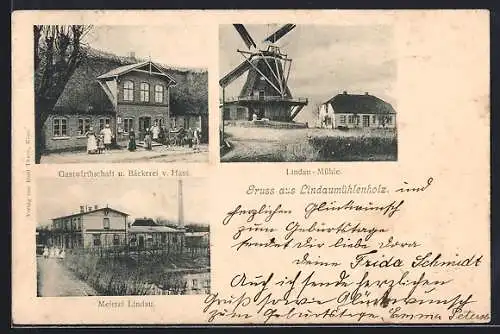 Gastwirthschaft u. Bäckerei v. Hass.
Lindau-Mühle.
Meierei Lindau.
Gruss aus Lindaumühlenholz. und
herzlichen Glückwunsch
zum Geburtstage
sendet dir liebe Dora
deine Frida Schmidt
Auch ich sende herzlichen
Gruß sowie Glückwunsch
zum Geburtstage Emma Petersen
Verlag von